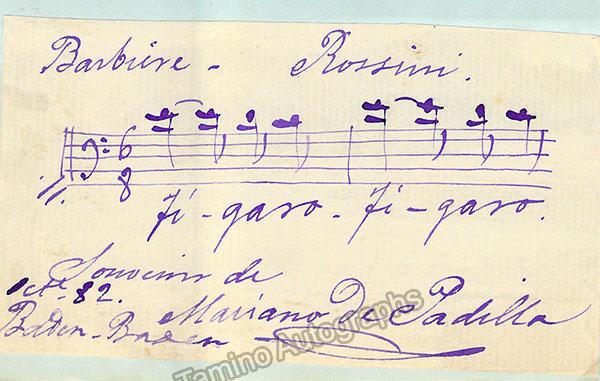 Barbiére - Rossini.
6
8
Fi - garo - Fi - garo.
Souvenir de
Oct. 82. Mariano De Padilla
Baden-Baden
Tamino Autographs